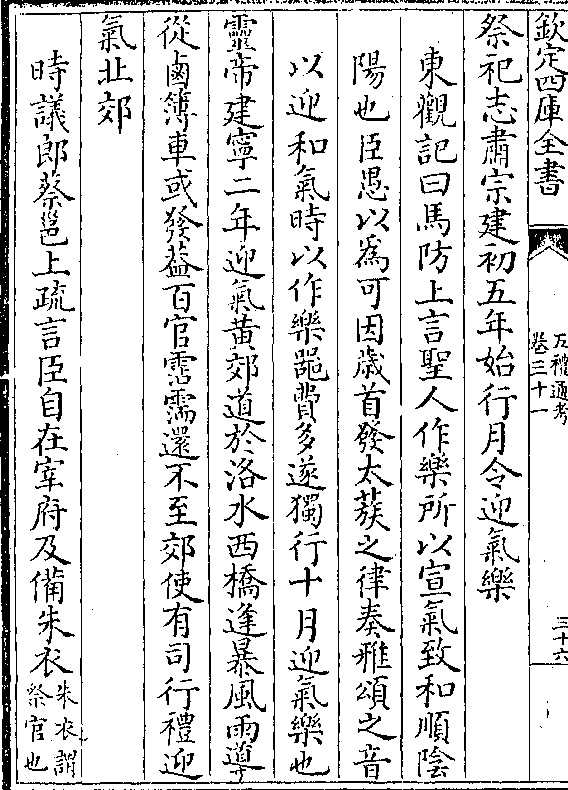 欽定四庫全書
五禮通考
卷三十一
三十六
祭祀志肅宗建初五年始行月令迎氣樂
東觀記曰馬防上言聖人作樂所以宣氣致和順陰
陽也臣愚以為可因歳首發太蔟之律奏雅頌之音
以迎和氣時以作樂器費多遂獨行十月迎氣樂也
靈帝建寧二年迎氣黄郊道於洛水西橋逢暴風雨導
從鹵簿車或發葢百官霑濡還不至郊使有司行禮迎
氣北郊
時議郎蔡邕上疏言臣自在宰府及備朱衣朱衣謂
祭官也